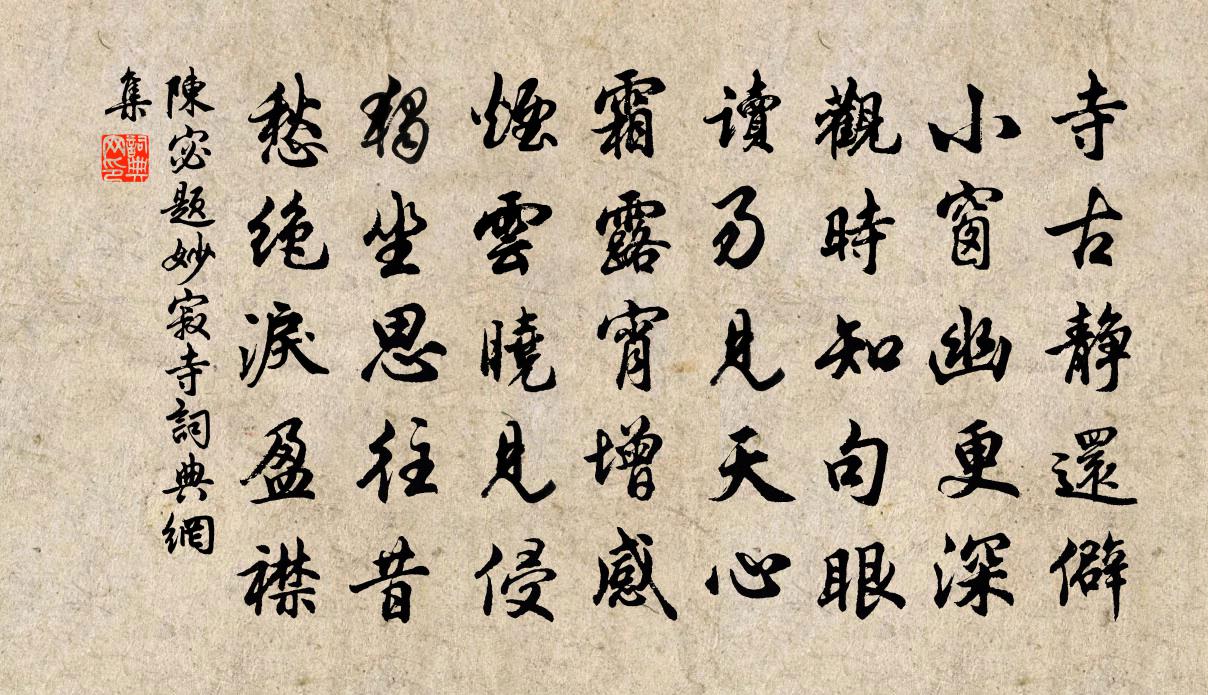 寺古静還僻
小窗幽更深
觀時知句眼
讀易見天心
霜露宵增感
煙雲曉見侵
獨坐思往昔
愁絕淚盈襟
陳宓題妙寂寺詞典網
集
詞典
网印